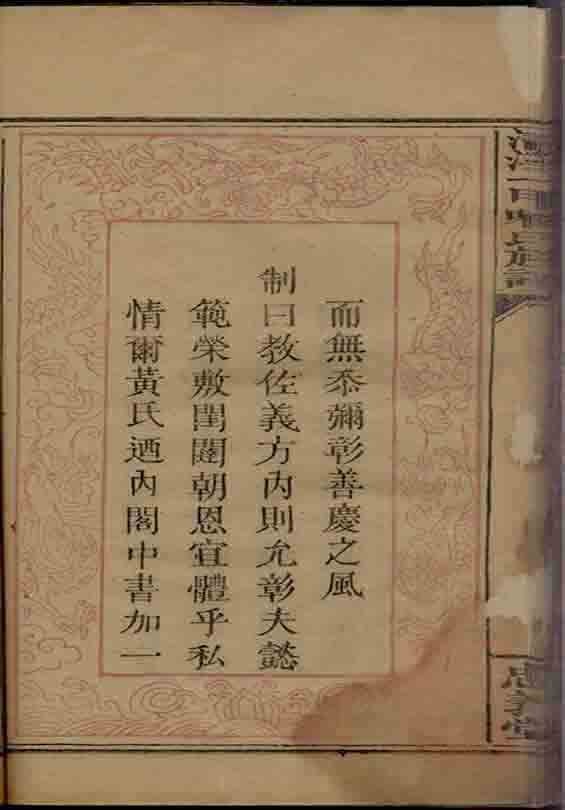 而無忝彌彰善慶之風
制曰教佐義方內則允彰夫懿
範榮敷閨闥朝恩宜體乎私
情爾黃氏迺內閣中書加一